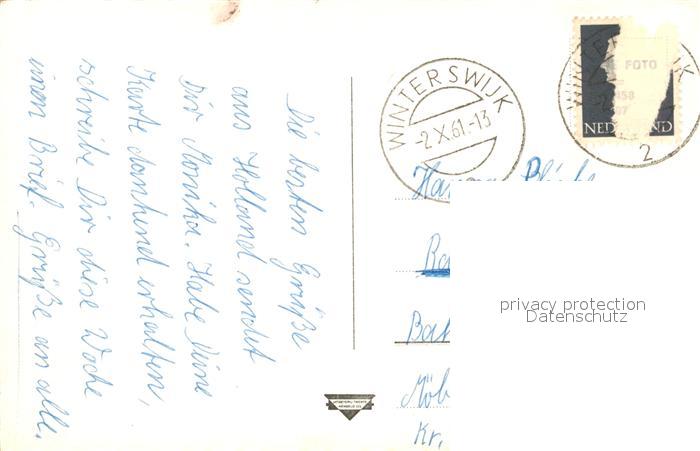 Die besten Grüße
aus Holland sendet
Dir Monika. Habe Deine
Karte dankend erhalten,
schreibe Dir diese Woche
einen Brief. Grüße an alle.
WINTERSWIJK
-2.X.61.-13
FOTO
458
NEDERLAND
2
Kr.
privacy protection
Datenschutz